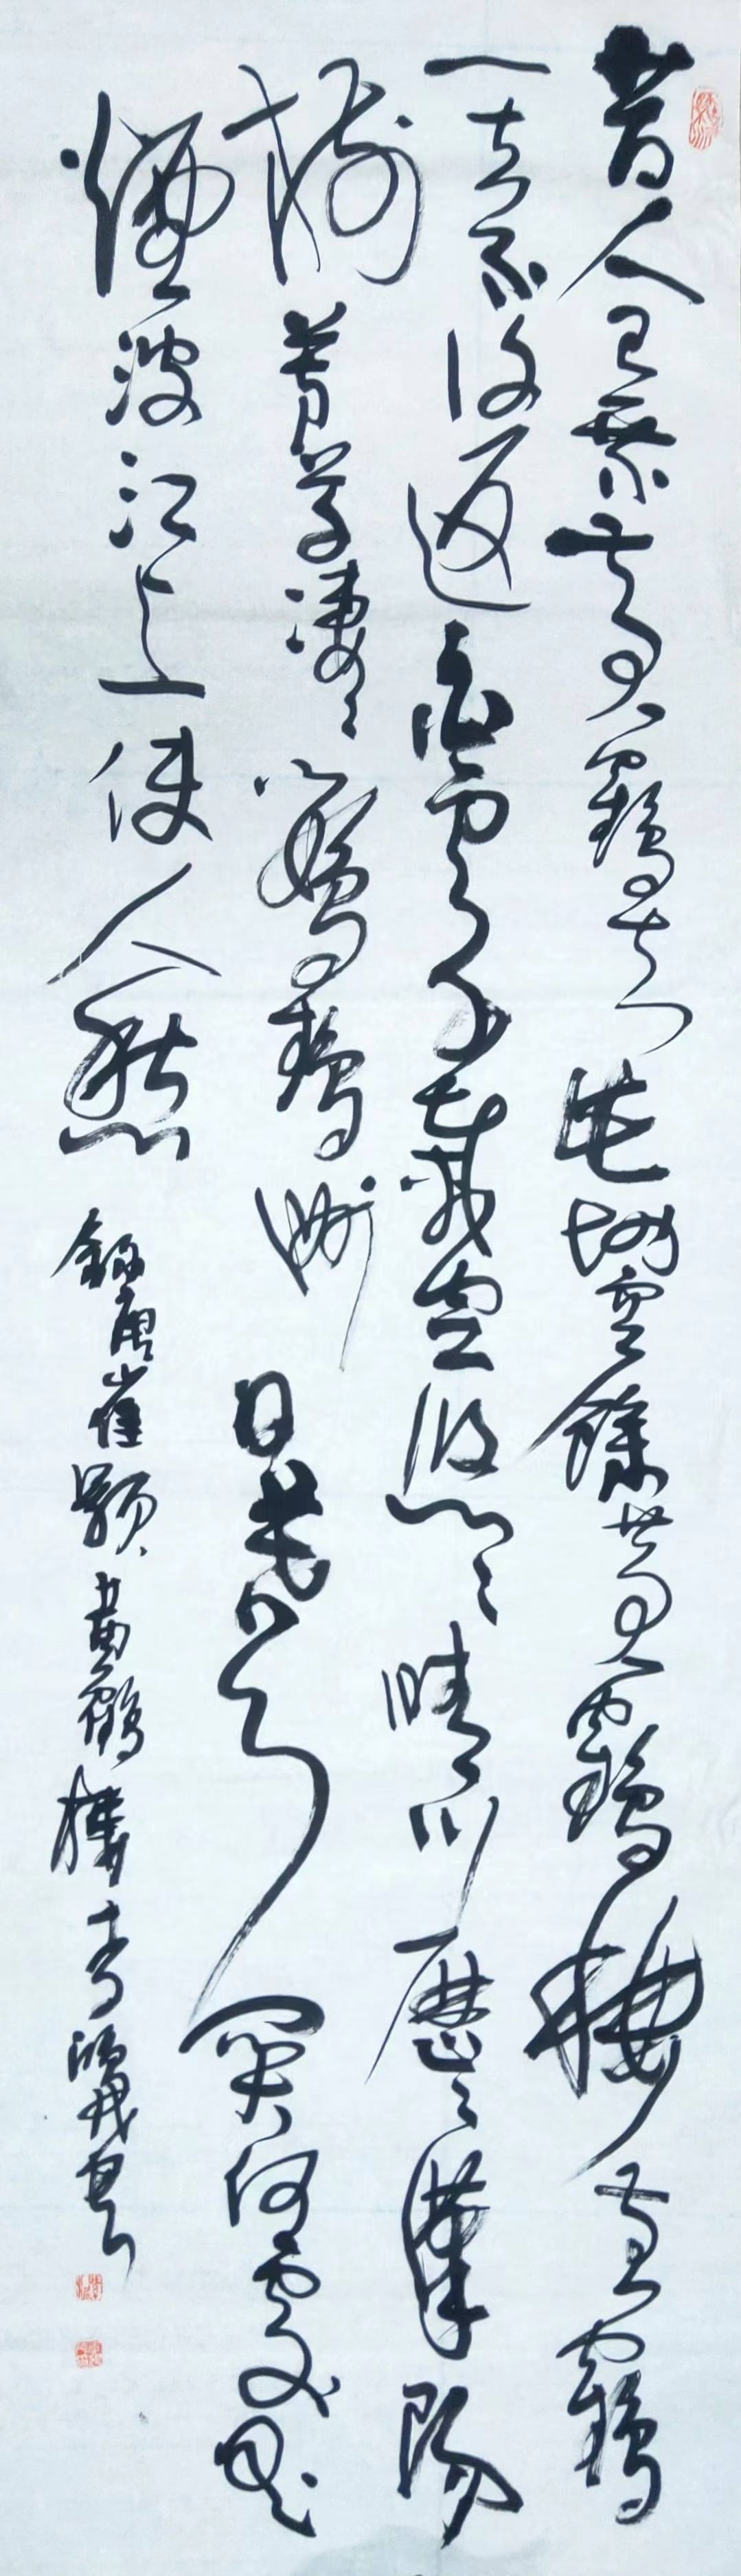 昔人已乘黃鶴去此地空餘黃鶴樓黃鶴
一去不復返白雲千載空悠々晴川歷々漢陽
樹芳草凄々鸚鵡洲日暮鄉關何處是
煙波江上使人愁 錄唐崔顥黃鶴樓 書